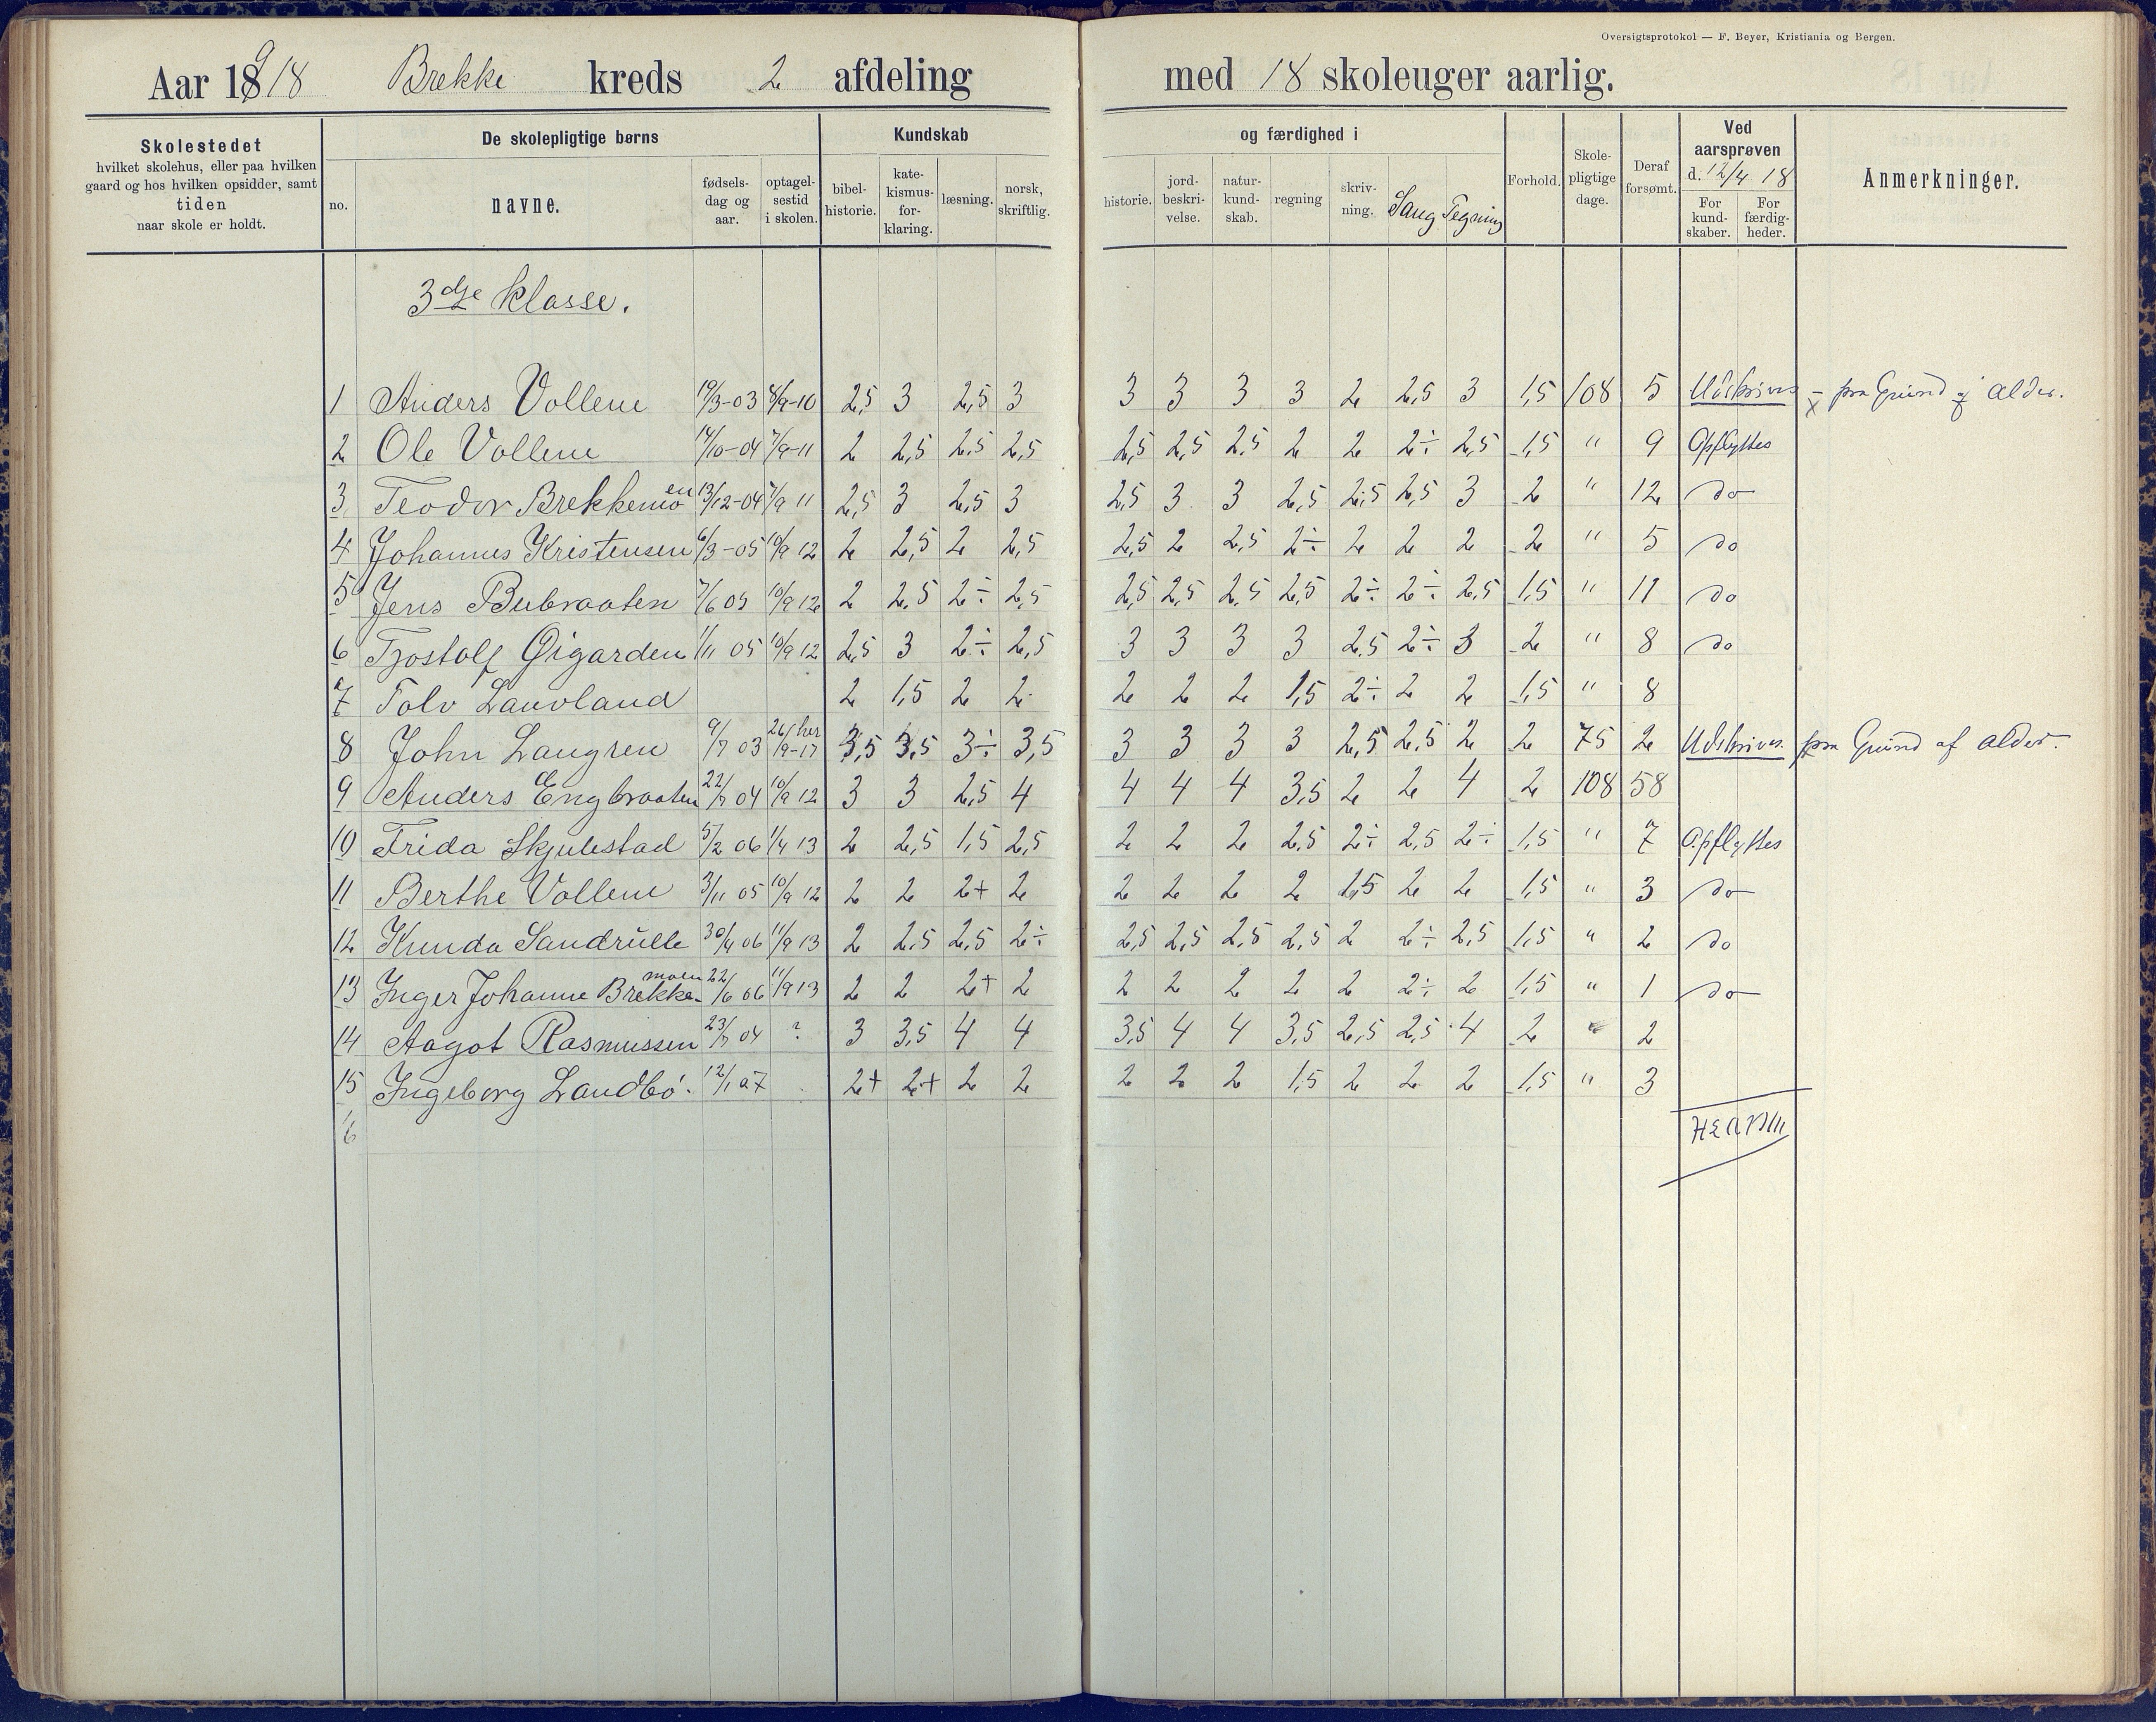 Oversigtsprotokol — F. Beyer, Kristiania og Bergen.
Aar 1918 Brekke kreds 2 afdeling med 18 skoleuger aarlig.
Skolestedet
hvilket skolehus, eller paa hvilken
gaard og hos hvilken opsidder, samt
tiden
naar skole er holdt.
De skolepligtige børns
no.
navne.
fødsels-
dag og
aar.
optagel-
sestid
i skolen.
Kundskab
bibel-
historie.
kate-
kismus-
for-
klaring.
læsning.
norsk,
skriftlig.
og færdighed i
historie.
jord-
beskri-
velse.
natur-
kund-
skab.
regning
skriv-
ning.
Sang
Tegning
Forhold.
Skole-
pligtige
dage.
Deraf
forsømt.
Ved
aarsprøven
d. 12/4 18
For
kund-
skaber.
For
færdig-
heder.
Anmerkninger.
3dje klasse.
1 Anders Vollene 19/3-03 8/9-10 2,5 3 2,5 3 3 3 3 3 2 2,5 3 1,5 108 5 Udskrives - paa Grund af alder.
2 Ole Vollene 14/10-04 7/9-11 2 2,5 2,5 2,5 2,5 2,5 2,5 2 2 2÷ 2,5 1,5 " 9 Opflyttes
3 Teodor Brekkemoen 13/12-04 7/9 11 2,5 3 2,5 3 2,5 3 3 2,5 2,5 2,5 3 2 " 12 do
4 Johannes Kristensen 6/3-05 10/9 12 2 2,5 2 2,5 2,5 2 2,5 2÷ 2 2 2 2 " 5 do
5 Jens Bubraaten 7/6 05 10/9 12 2 2,5 2÷ 2,5 2,5 2,5 2,5 2,5 2÷ 2÷ 2,5 1,5 " 11 do
6 Tjostolf Øigarden 1/11 05 10/9 12 2,5 3 2÷ 2,5 3 3 3 3 2,5 2÷ 3 2 " 8 do
7 Tolv Lauvland 2 1,5 2 2 2 2 2 1,5 2÷ 2 2 1,5 " 8
8 John Laugren 9/7 03 26/9-17 her 3,5 3,5 3÷ 3,5 3 3 3 3 2,5 2,5 2 2 75 2 Udskrives paa Grund af alder.
9 Anders Engbraaten 22/7 04 10/9 12 3 3 2,5 4 4 4 4 3,5 2 2 4 2 108 58
10 Frida Skjulestad 5/2 06 1/4 13 2 2,5 1,5 2,5 2 2 2 2,5 2÷ 2,5 2÷ 1,5 " 7 Opflyttes
11 Berthe Vollene 3/11 05 10/9 12 2 2 2+ 2 2 2 2 2 1,5 2 2 1,5 " 3 do
12 Kunda Sandrulle 30/4 06 11/9 13 2 2,5 2,5 2÷ 2,5 2,5 2,5 2,5 2 2÷ 2,5 1,5 " 2 do
13 Inger Johanne Brekkemoen 22/6 06 11/9 13 2 2 2+ 2 2 2 2 2 2 2÷ 2 1,5 " 1 do
14 Aagot Rasmussen 23/7 04 ? 3 3,5 4 4 3,5 4 4 3,5 2,5 2,5 4 2 " 2
15 Ingeborg Landbö. 12/1 07 2+ 2+ 2 2 2 2 2 1,5 2 2 2 1,5 " 3
6